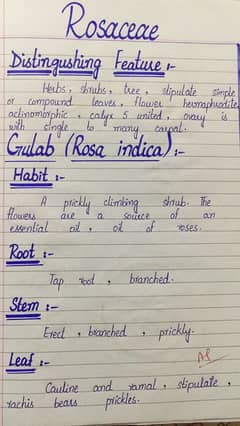 Rosaceae
Distingushing Feature :-
Herbs, shrubs, tree, stipulate simple
or compound leaves, flower hermaphrodite
actinomorphic, calyx 5 united, ovary is
with single to many carpal.
Gulab (Rosa indica) :-
Habit :-
A prickly climbing shrub. The
flowers are a source of an
essential oil, oil of roses.
Root :-
Tap root, branched.
Stem :-
Erect, branched, prickly.
Leaf :-
Cauline and ramal, stipulate,
rachis bears prickles.